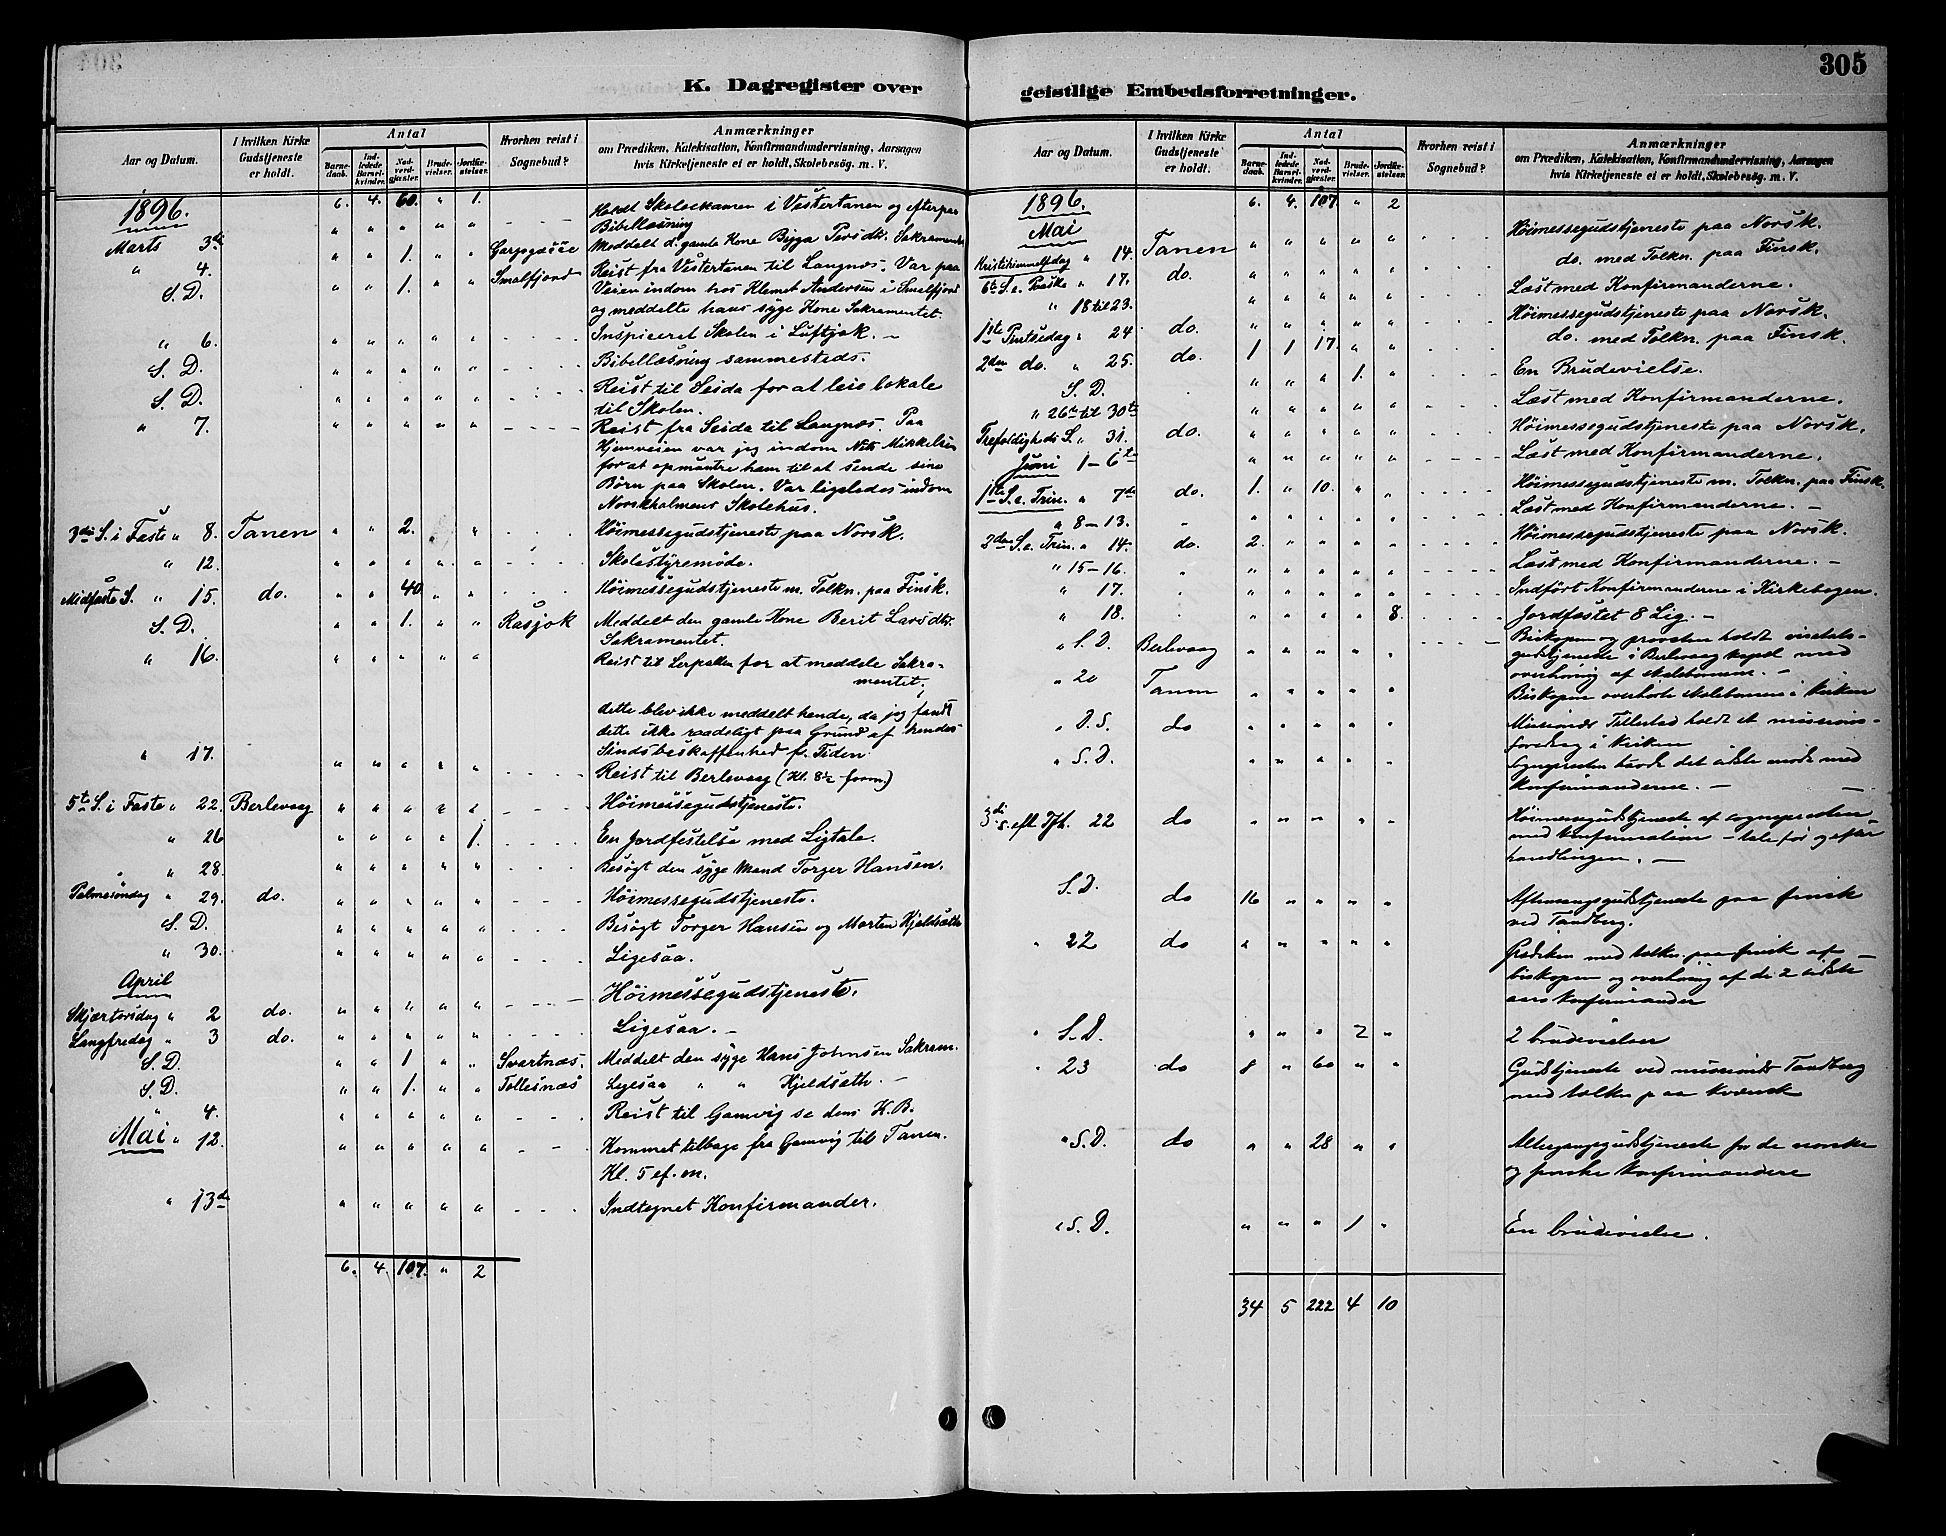 305
K. Dagregister over geistlige Embedsforretninger.
Aar og Datum.
I hvilken Kirke Gudstjeneste er holdt.
Antal
Barnedaab.
Indledede Barselkvinder.
Nadverdgjester.
Brudevielser.
Jordfæstelser.
Hvorhen reist i Sognebud?
Anmærkninger
om Prædiken, Katekisation, Konfirmandundervisning, Aarsagen
hvis Kirketjeneste ei er holdt, Skolebesøg. m. V.
1896. 6. 4. 60. " 1. Holdt Skoleexamen i Vestertanen og efterpaa
Bibellæsning
Marts 3die " " 1. " " Meddelt d. gamle Kone Persdtr. Sakramentet
" 4. Smalfjord Reist fra Vestertanen til Langnæs. Var paa
S. D. " " 1. " " Veien indom hos Klemet Andersen i Smalfjord
og meddelte hans syge Kone Sakramentet.
" 6. Inspiceret Skolen i Luftjok. -
S. D. Bibellæsning sammesteds.
S. D. Reist til Seida for at leie lokale
til Skolen.
" 7. Reist fra Seida til Langnæs. Paa
Hjemveien var jeg indom Nils Mikkelsen
for at opmuntre ham til at sende sine
Børn paa Skolen. Var ligeledes indom
Norskholmens Skolehus.
3die S. i Faste " 8. Tanen " " 2. " Høimessegudstjeneste paa Norsk.
" 12. Skolestyremøde.
Midfaste S. " 15. do. " " 40 " " Høimessegudstjeneste m. Tolkn. paa Finsk.
S. D. " " 1. " " Rasjok Meddelt den gamle Kone Berit Larsdtr.
Sakramentet.
" 16. Reist til Lerpollen for at meddele Sakra-
mentet;
dette blev ikke meddelt hende, da jeg fandt
dette ikke raadeligt paa Grund af hendes
Sindsbeskaffenhed f. Tiden.
" 17. Reist til Berlevaag (Kl. 8½ form.)
5te S. i Faste " 22. Berlevaag Høimessegudstjeneste.
" 26 " " " " 1. En Jordfæstelse med Ligtale.
" 28. Besøgt den syge Mand Torger Hansen.
Palmesøndag " 29. do. Høimessegudstjeneste.
S. D. Besøgt Torger Hansen og Morten Kjeldsæth
" 30. Ligesaa.
April
Skjærtorsdag " 2 do. Høimessegudstjeneste.
Langfredag " 3 do. Ligesaa. -
S. D. " " 1 " " Svartnæs. Meddelt den syge Hans Johnsen Sakram.
S. D. " " 1. " " Tollesnæs Ligesaa " " Kjeldsæth. -
" 4. Reist til Gamvig se dens K. B.
Mai " 12. Kommet tilbage fra Gamvig til Tanen.
Kl. 5 ef. m.
" 13de Indtegnet Konfirmander.
6. 4. 107. " 2
Aar og Datum.
I hvilken Kirke Gudstjeneste er holdt.
Antal
Barnedaab.
Indledede Barselkvinder.
Nadverdgjester.
Brudevielser.
Jordfæstelser.
Hvorhen reist i Sognebud?
Anmærkninger
om Prædiken, Katekisation, Konfirmandundervisning, Aarsagen
hvis Kirketjeneste ei er holdt, Skolebesøg. m. V.
1896. 6. 4. 107. " 2
Mai
Kristihimmelfdag " 14. Tanen Høimessegudstjeneste paa Norsk.
6te S. e. Paaske " 17. do. do. med Tolkn. paa Finsk.
" 18 til 23. Læst med Konfirmanderne.
1ste Pintsedag " 24 do. Høimessegudstjeneste paa Norsk.
2den do. " 25. do. 1 1 17. " " do. med Tolkn. paa Finsk.
S. D. " " " 1. " En Brudevielse.
" 26de til 30te Læst med Konfirmanderne.
Trefoldigheds S. " 31. do. Høimessegudstjeneste paa Norsk.
Juni 1-6te Læst med Konfirmanderne.
1ste S. e. Trin. " 7de do. 1. " 10. " " Høimessegudstjeneste m. Tolkn. paa Finsk.
" 8-13. Læst med Konfirmanderne. -
2den S. e. Trin. " 14. do. 2. " " " " Høimessegudstjeneste paa Norsk.
" 15-16. Læst med Konfirmanderne. -
" 17. Indført Konfirmanderne i Kirkebogen.
" 18. " " " " 8. Jordfæstet 8 Lig. -
" S. D. Berlevaag Biskopen og provsten holdt visitats-
gudstjeneste i Berlevaag kapel med
overhøring af skolebørnene. -
" 20 Tanen Biskopen overhørte skolebørnene i Kirken
" D. S. do holdt et missions-
foredrag i Kirken
" S. D. Sognepresten havde det sidste møde med
Konfirmanderne. -
3di S. eft Tfh. 22 do Høimessegudstjeneste af sognepresten
med konfirmation - tale før og efter
handlingen. -
S. D. do 16 " " " " Aftensangsgudstjeneste paa finsk
ved Tandberg.
" 22 do Prædiken med tolkn. paa finsk af
biskopen og overhøring af de 2 sidste
aars konfirmander
" S. D. " " " 2 " 2 brudevielser
" 23 do 8 " 60 " " Gudstjeneste ved Tandberg
med tolkn paa kvænsk
" S. D. do " " 28 " " Altergangsgudstjeneste for de norske
og finske konfirmandere
" S. D. " " " 1 " En brudevielse.
34 5 222 4 10